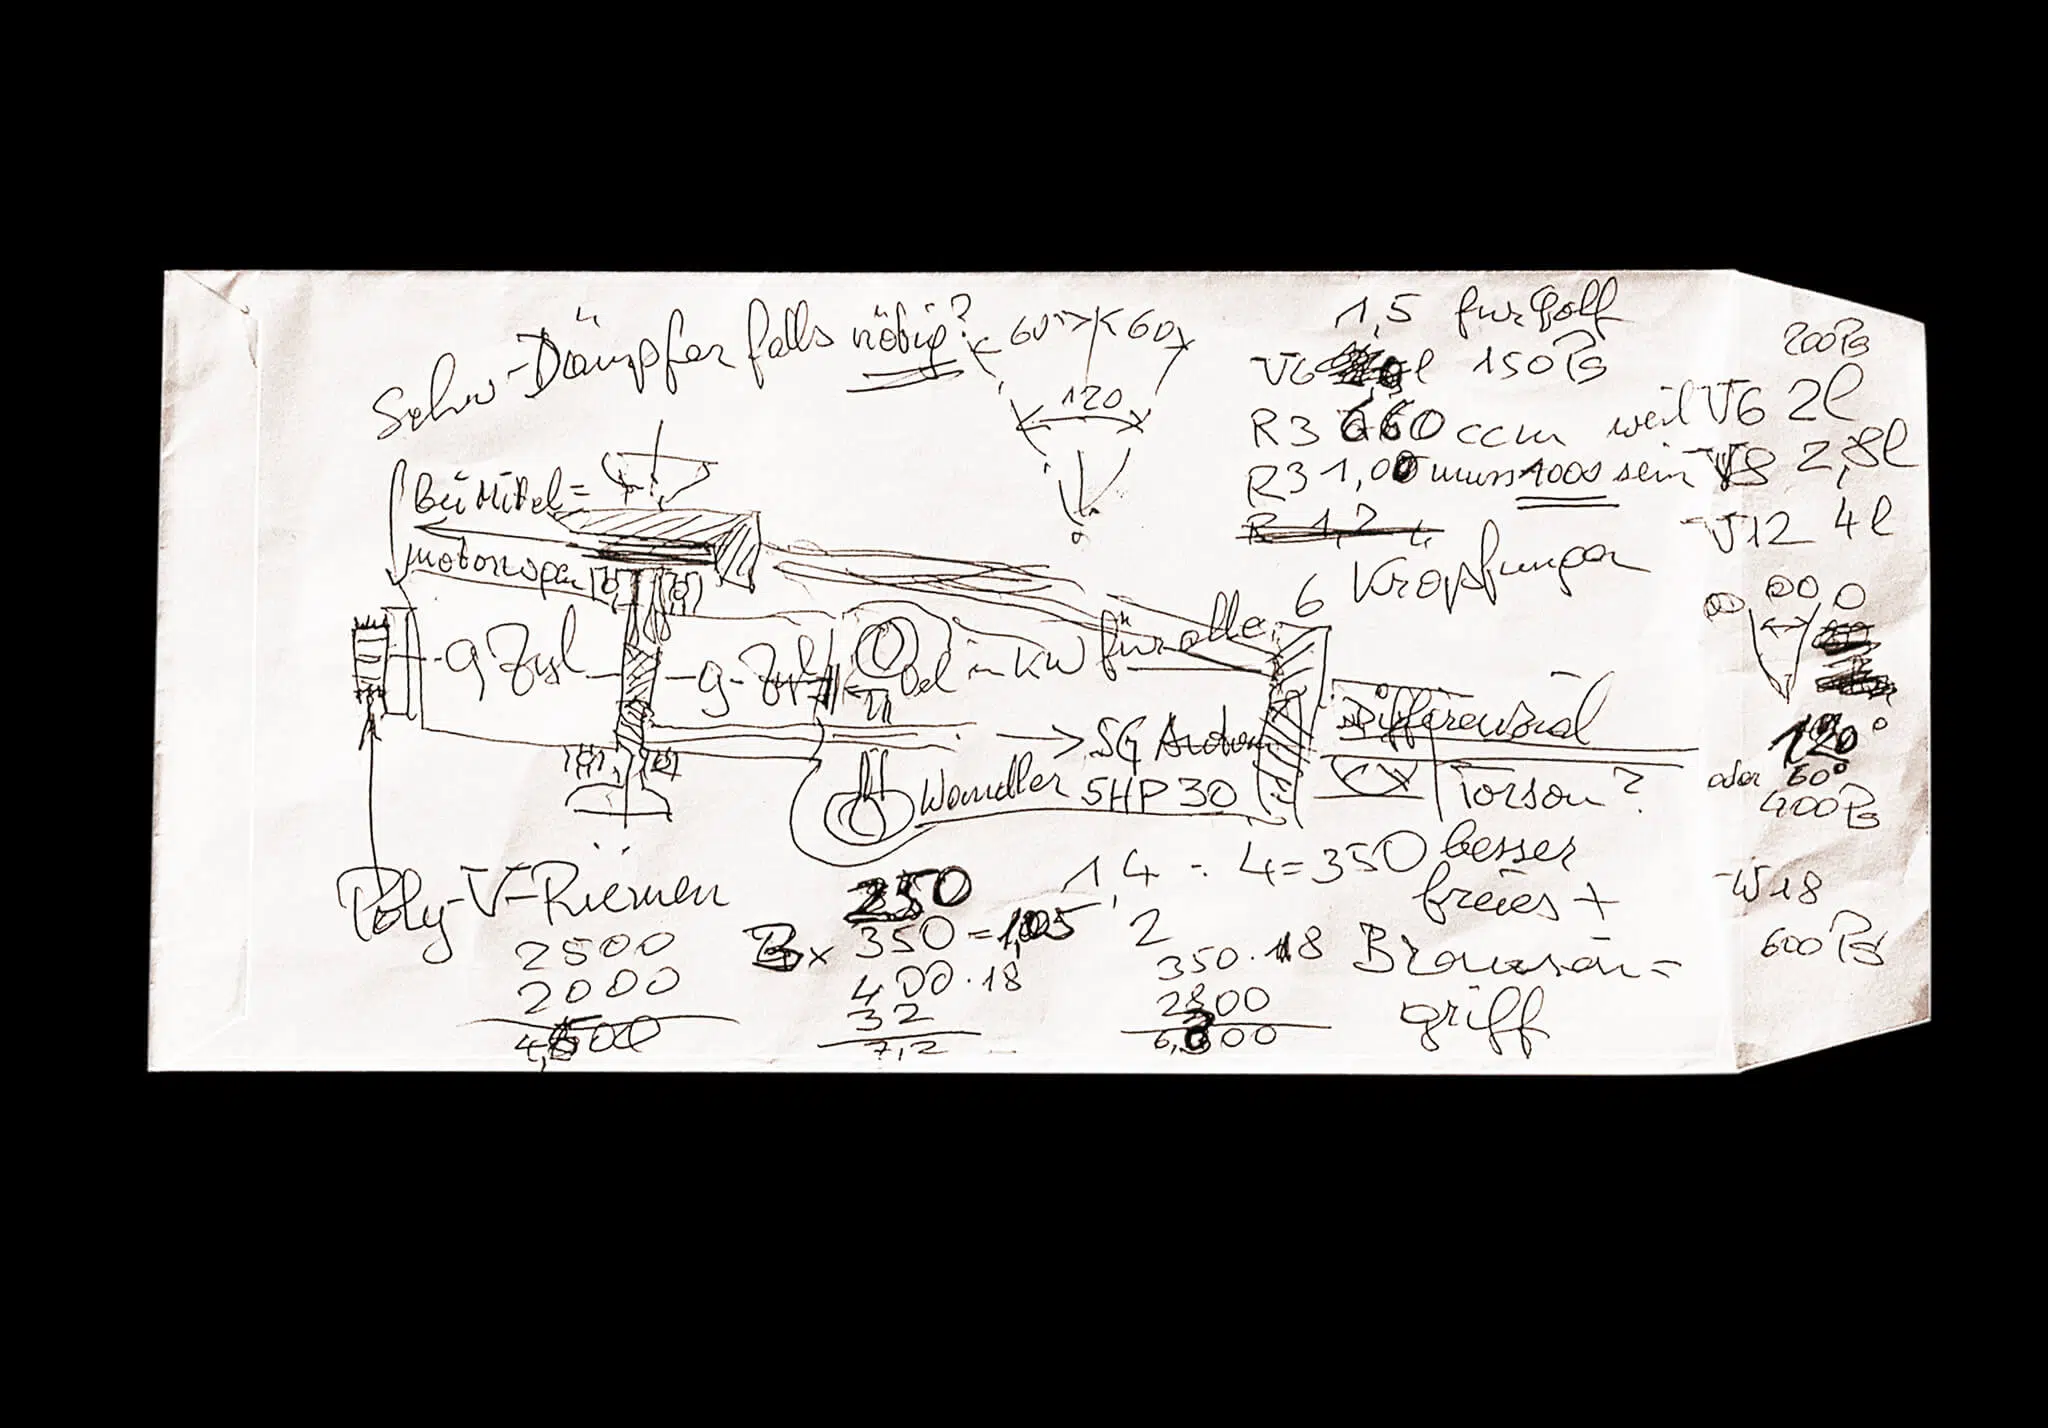 Schw-Dämpfer falls nötig?
60° 60
120
1,5 fur Golf
V6 l 150 PS
R3 660 ccm weil V6 2l
R3 1,00 muss 1000 sein V8 2,8l
R 1,2
V12 4l
200 PS
6 Kröpfungen
Bei Mittel=
motorwagen
9 Zyl 9-Zyl
Oel in KW für alle
→ SG Autom
Wandler 5HP30
Differenzial
Torson?
besser
freies +
Browning=
griff
120°
oder 60°
400 PS
W18
600 PS
Poly-V-Riemen
2500
2000
4,500
250
3 x 350 = 1,05
400 . 18
32
7,2
1,4 : 4 = 350
2
350 . 18
2800
6,300